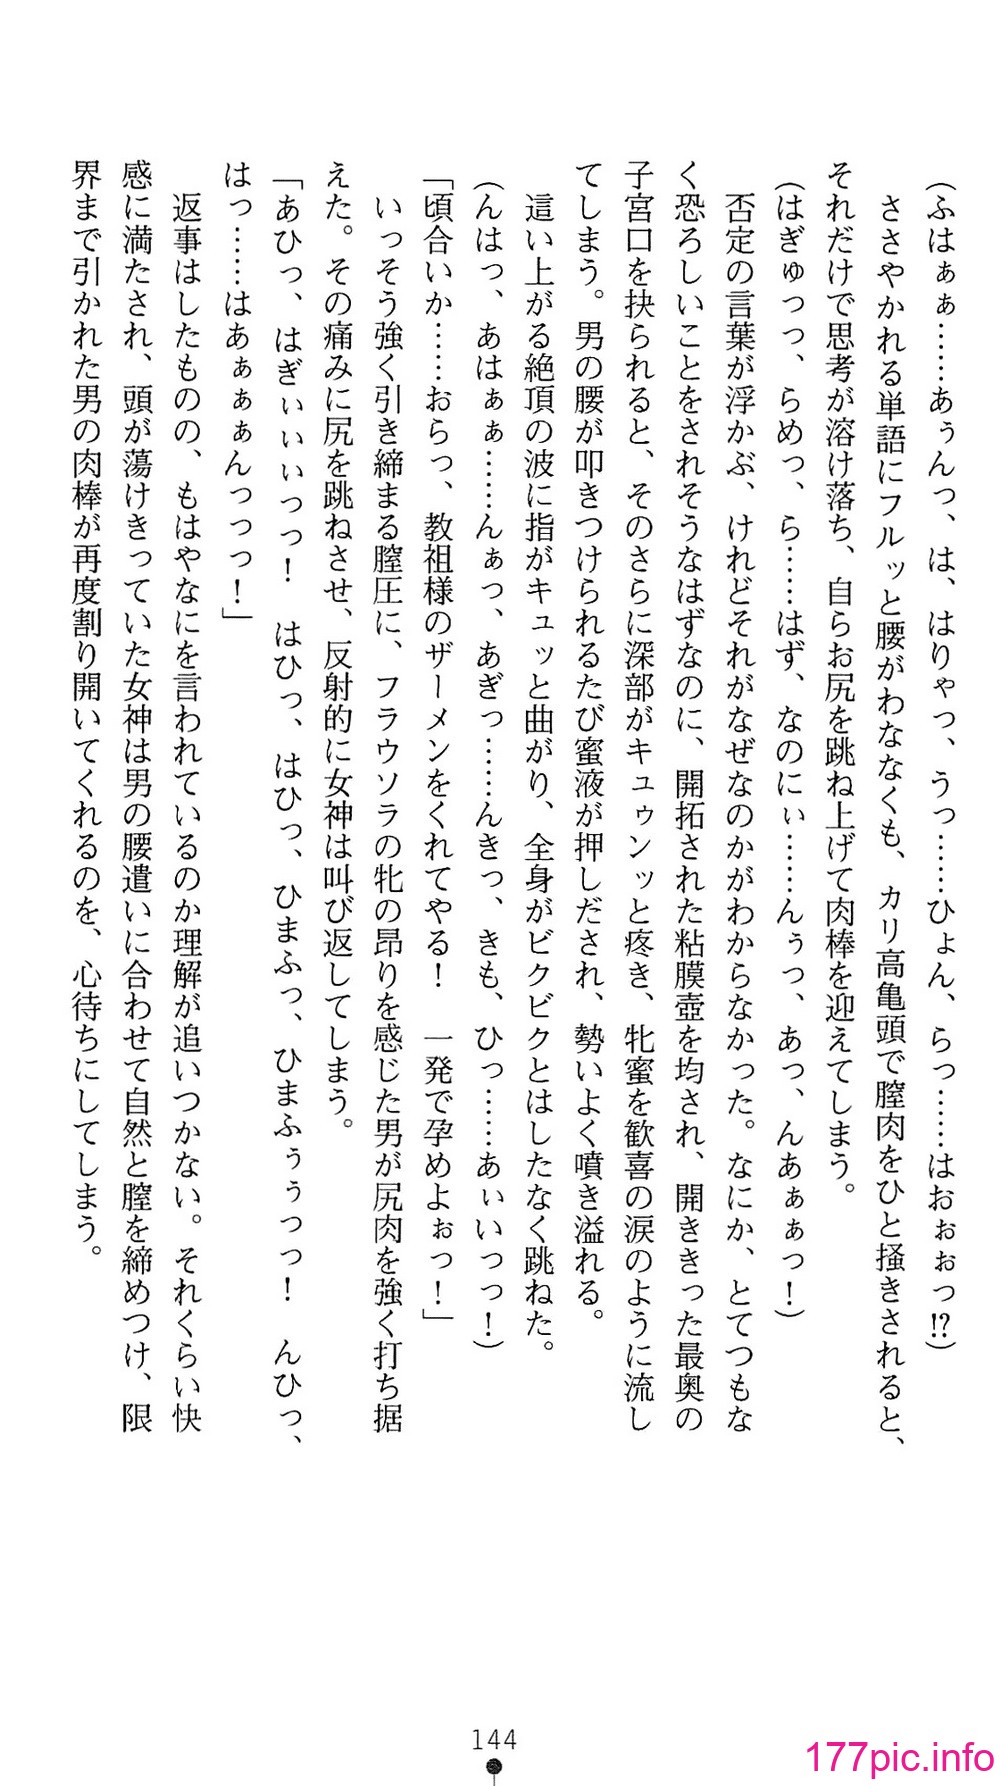 (ふはぁぁ……あぅんっ、は、はりゃっ、うっ……ひょん、らっ……はおぉぉっ!?)
　ささやかれる単語にフルッと腰がわななくも、カリ高亀頭で膣肉をひと掻きされると、
それだけで思考が溶け落ち、自らお尻を跳ね上げて肉棒を迎えてしまう。
(はぎゅっっ、らめっ、ら……はず、なのにぃ……んぅっ、あっ、んあぁぁっ！)
　否定の言葉が浮かぶ、けれどそれがなぜなのかがわからなかった。なにか、とてつもな
く恐ろしいことをされそうなはずなのに、開拓された粘膜壺を均され、開ききった最奥の
子宮口を抉られると、そのさらに深部がキュゥンッと疼き、牝蜜を歓喜の涙のように流し
てしまう。男の腰が叩きつけられるたび蜜液が押しだされ、勢いよく噴き溢れる。
　這い上がる絶頂の波に指がキュッと曲がり、全身がビクビクとはしたなく跳ねた。
(んはっ、あはぁぁ……んぁっ、あぎっ……んきっ、きも、ひっ……あぃいっっ！)
「頃合いか……おらっ、教祖様のザーメンをくれてやる！　一発で孕めよぉっ！」
　いっそう強く引き締まる膣圧に、フラウソラの牝の昂りを感じた男が尻肉を強く打ち据
えた。その痛みに尻を跳ねさせ、反射的に女神は叫び返してしまう。
「あひっ、はぎぃぃいっっ！　はひっ、はひっ、ひまふっ、ひまふぅぅっっ！　んひっ、
はっ……はあぁぁぁんっっっ！」
　返事はしたものの、もはやなにを言われているのか理解が追いつかない。それくらい快
感に満たされ、頭が蕩けきっていた女神は男の腰遣いに合わせて自然と膣を締めつけ、限
界まで引かれた男の肉棒が再度割り開いてくれるのを、心待ちにしてしまう。
144
177pic.info